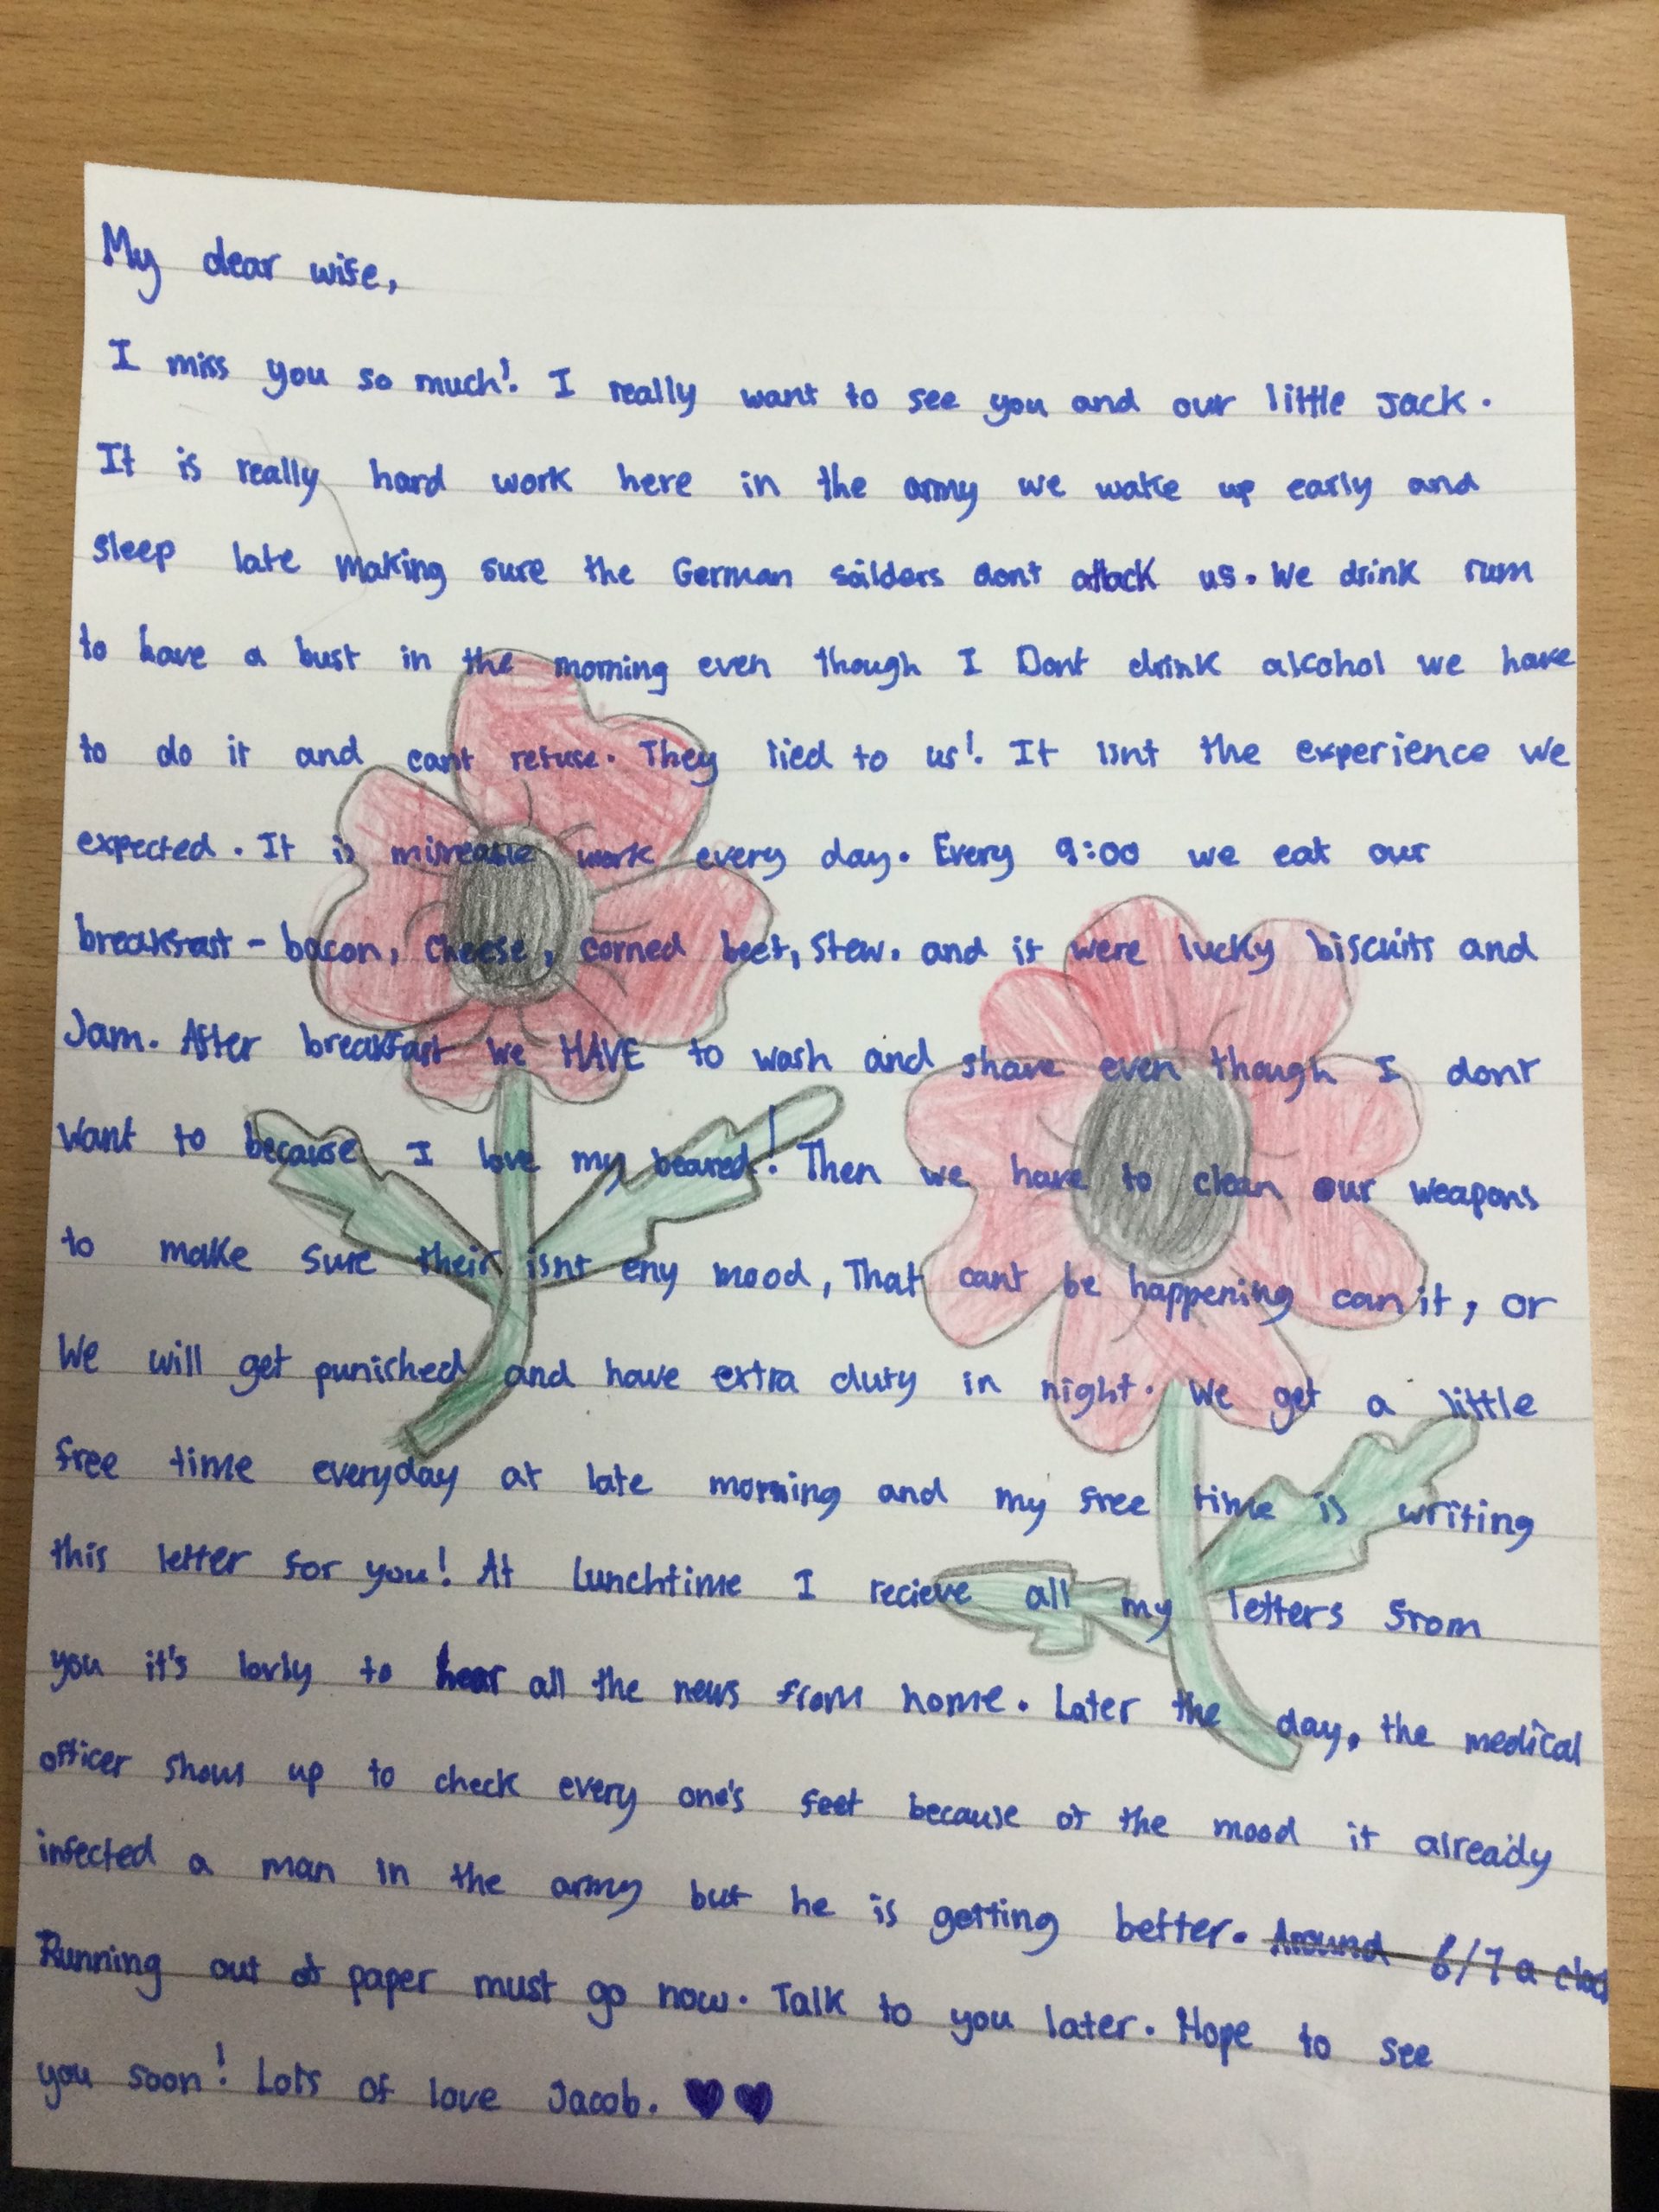 My dear wife,
I miss you so much! I really want to see you and our little Jack.
It is really hard work here in the army we wake up early and
sleep late making sure the German soilders dont attack us. We drink rum
to have a bust in the morning even though I Dont drink alcohol we have
to do it and cant refuse. They lied to us! It isnt the experience we
expected. It is misreable work every day. Every 9:00 we eat our
breakfast - bacon, cheese, corned beef, stew. and if were lucky biscuits and
Jam. After breakfast we HAVE to wash and shave even though I dont
want to because I love my beared! Then we have to clean our weapons
to make sure their isnt eny mood, That cant be happening can it, or
We will get punished and have extra duty in night. We get a little
free time everyday at late morning and my free time is writing
this letter for you! At lunchtime I recieve all my letters from
you it's lovly to hear all the news from home. Later the day, the medical
officer shows up to check every one's feet because of the mood it already
infected a man in the army but he is getting better. Around 6/7 a cloc
Running out of paper must go now. Talk to you later. Hope to see
you soon! Lots of love Jacob.